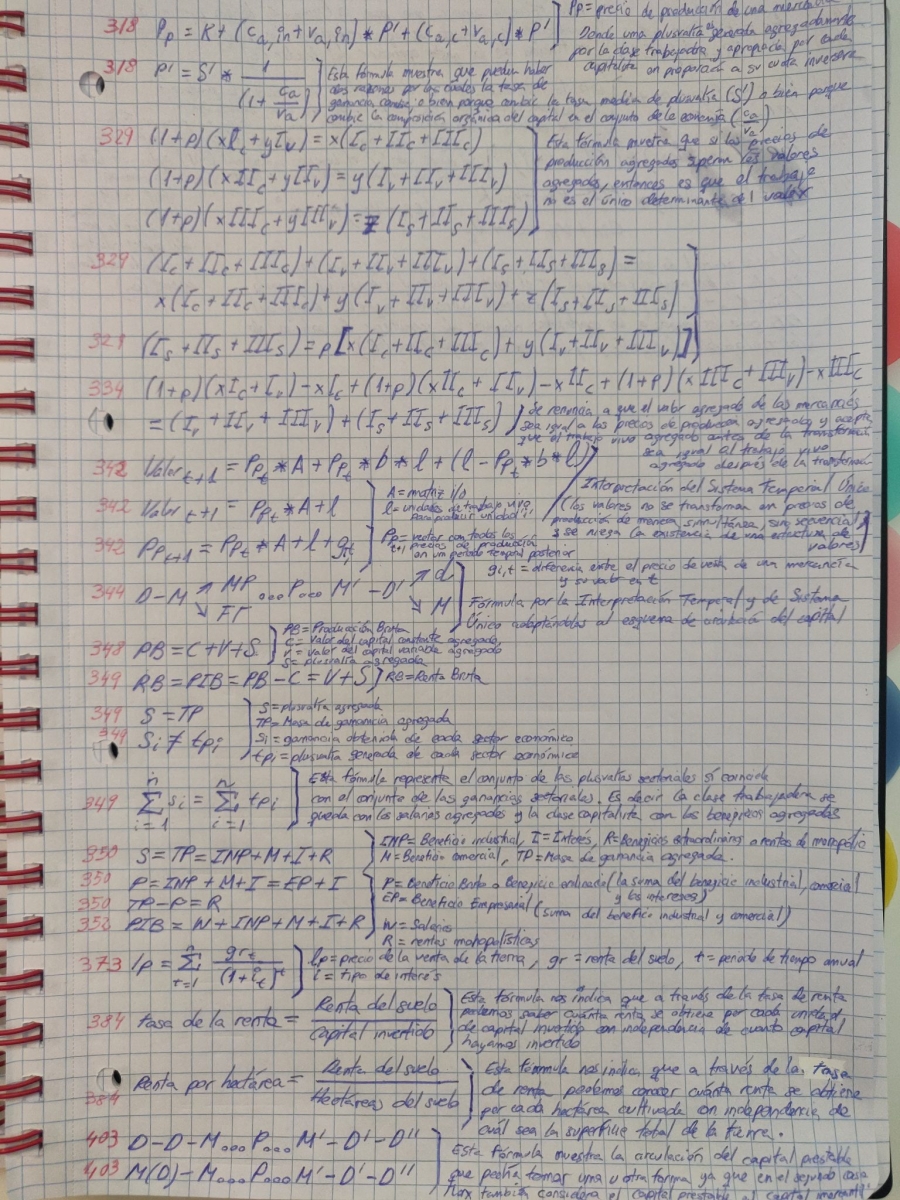 Pp = precio de producción de una mercancía
318 Pp = K + (c_a,in + v_a,in) * P' + (c_a,c + v_a,c) * P'
Donde una plusvalía es generada agregadamente
por la clase trabajadora y apropiada por cada
capitalista en proporción a su cuota inversora
318 P' = S' * 1/(1 + c_a/v_a)
Esta fórmula muestra que pueden haber
dos razones por las cuales la tasa de
ganancia cambie: o bien porque cambie la tasa media de plusvalía (S') o bien porque
cambie la composición orgánica del capital en el conjunto de la economía (c_a/v_a)
329 (1+p)(xI_c + yI_v) = x(I_c + II_c + III_c)
(1+p)(xII_c + yII_v) = y(I_v + II_v + III_v)
(1+p)(xIII_c + yIII_v) = z(I_s + II_s + III_s)
Esta fórmula muestra que si los precios de
producción agregados superan los valores
agregados, entonces es que el trabajo
no es el único determinante del valor
329 (I_c + II_c + III_c) + (I_v + II_v + III_v) + (I_s + II_s + III_s) =
x(I_c + II_c + III_c) + y(I_v + II_v + III_v) + z(I_s + II_s + III_s)
(I_s + II_s + III_s) = p[x(I_c + II_c + III_c) + y(I_v + II_v + III_v)]
334 (1+p)(xI_c + I_v) - xI_c + (1+p)(xII_c + II_v) - xII_c + (1+p)(xIII_c + III_v) - xIII_c
= (I_v + II_v + III_v) + (I_s + II_s + III_s)
Se renuncia a que el valor agregado de las mercancías
sea igual a los precios de producción agregados y acepta
que el trabajo vivo agregado antes de la transformación
sea igual al trabajo vivo
agregado después de la transformación
342 Valor_t+1 = Pp_t * A + Pp_t * b * l + (l - Pp_t * b * l)
342 Valor_t+1 = Pp_t * A + l
A = matriz i/o
l = unidades de trabajo vivo
para producir unidad i
Interpretación del Sistema Temporal Único
(los valores no se transforman en precios de
producción de manera simultánea, sino secuencial
y se niega la existencia de una estructura de
valores)
342 Pp_t+1 = Pp_t * A + l + g_t
Pp_t+1 = vector con todos los
precios de producción
en un período temporal posterior
gi,t = diferencia entre el precio de venta de una mercancía
y su valor en t
344 D-M ↗ MP ↘ FT ...P... M' - D' ↗ d ↘ M
Fórmula por la Interpretación Temporal y de Sistema
Único adaptándolas al esquema de circulación del capital
348 PB = C + V + S
PB = Producción Bruta
C = Valor del capital constante agregado,
V = valor del capital variable agregado
S = plusvalía agregada
349 RB = PIB = PB - C = V + S
RB = Renta Bruta
349 S = TP
S = plusvalía agregada
TP = Masa de ganancia agregada
349 Si ≠ tpi
Si = ganancia obtenida de cada sector económico
tpi = plusvalía generada de cada sector económico
349 Σ_{i=1}^{n} si = Σ_{i=1}^{n} tpi
Esta fórmula representa el conjunto de las plusvalías sectoriales sí coincida
con el conjunto de las ganancias sectoriales. Es decir la clase trabajadora se
queda con los salarios agregados y la clase capitalista con los beneficios agregados
350 S = TP = INP + M + I + R
INP = Beneficio industrial, I = Interés, R = Beneficios extraordinarios o rentas de monopolio
M = Beneficio comercial, TP = Masa de ganancia agregada.
350 P = INP + M + I = EP + I
P = Beneficio Bruto o Beneficio ordinario (la suma del beneficio industrial, comercial
y los intereses)
350 TP - P = R
EP = Beneficio Empresarial (suma del beneficio industrial y comercial)
352 PIB = W + INP + M + I + R
W = Salarios
R = rentas monopolísticas
373 lp = Σ_{t=1}^{n} gr_t/(1+i_t)^t
lp = precio de la venta de la tierra, gr = renta del suelo, t = periodo de tiempo anual
i = tipo de interés
384 tasa de la renta = Renta del suelo / capital invertido
Esta fórmula nos indica que a través de la tasa de renta
podemos saber cuánta renta se obtiene por cada unidad
de capital invertido con independencia de cuanto capital
hayamos invertido
384 Renta por hectárea = Renta del suelo / Hectáreas del suelo
Esta fórmula nos indica, que a través de la tasa
de renta podemos conocer cuánta renta se obtiene
por cada hectárea cultivada con independencia de
cuál sea la superficie total de la tierra.
403 D-D-M...P...M'-D'-D''
403 M(D)-M...P...M'-D'-D''
Esta fórmula muestra la circulación del capital prestable
que podría tomar una u otra forma ya que en el segundo caso
Marx también considera el capital prestable al capital mercantil